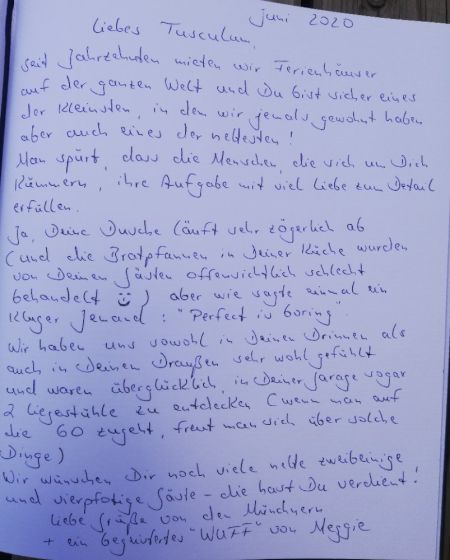 Juni 2020
Liebes Tusculum,
seit Jahrzehnten mieten wir Ferienhäuser
auf der ganzen Welt und Du bist sicher eines
der kleinsten, in dem wir jemals gewohnt haben
aber auch eines der nettesten!
Man spürt, dass die Menschen, die sich um Dich
kümmern, ihre Aufgabe mit viel Liebe zum Detail
erfüllen.
Ja, Deine Dusche läuft sehr zögerlich ab
(und die Bratpfannen in Deiner Küche wurden
von Deinen Gästen offensichtlich schlecht
behandelt ☺) aber wie sagte einmal ein
kluger Jemand: "Perfect is boring".
Wir haben uns sowohl in Deinen Drinnen als
auch in Deinen Draußen sehr wohl gefühlt
und waren überglücklich, in Deiner Garage sogar
2 Liegestühle zu entdecken (wenn man auf
die 60 zugeht, freut man sich über solche
Dinge)
Wir wünschen Dir noch viele nette zweibeinige
und vierpfotige Gäste - die hast Du verdient!
Liebe Grüße von den Münchnern
+ ein begeistertes "WUFF" von Meggie